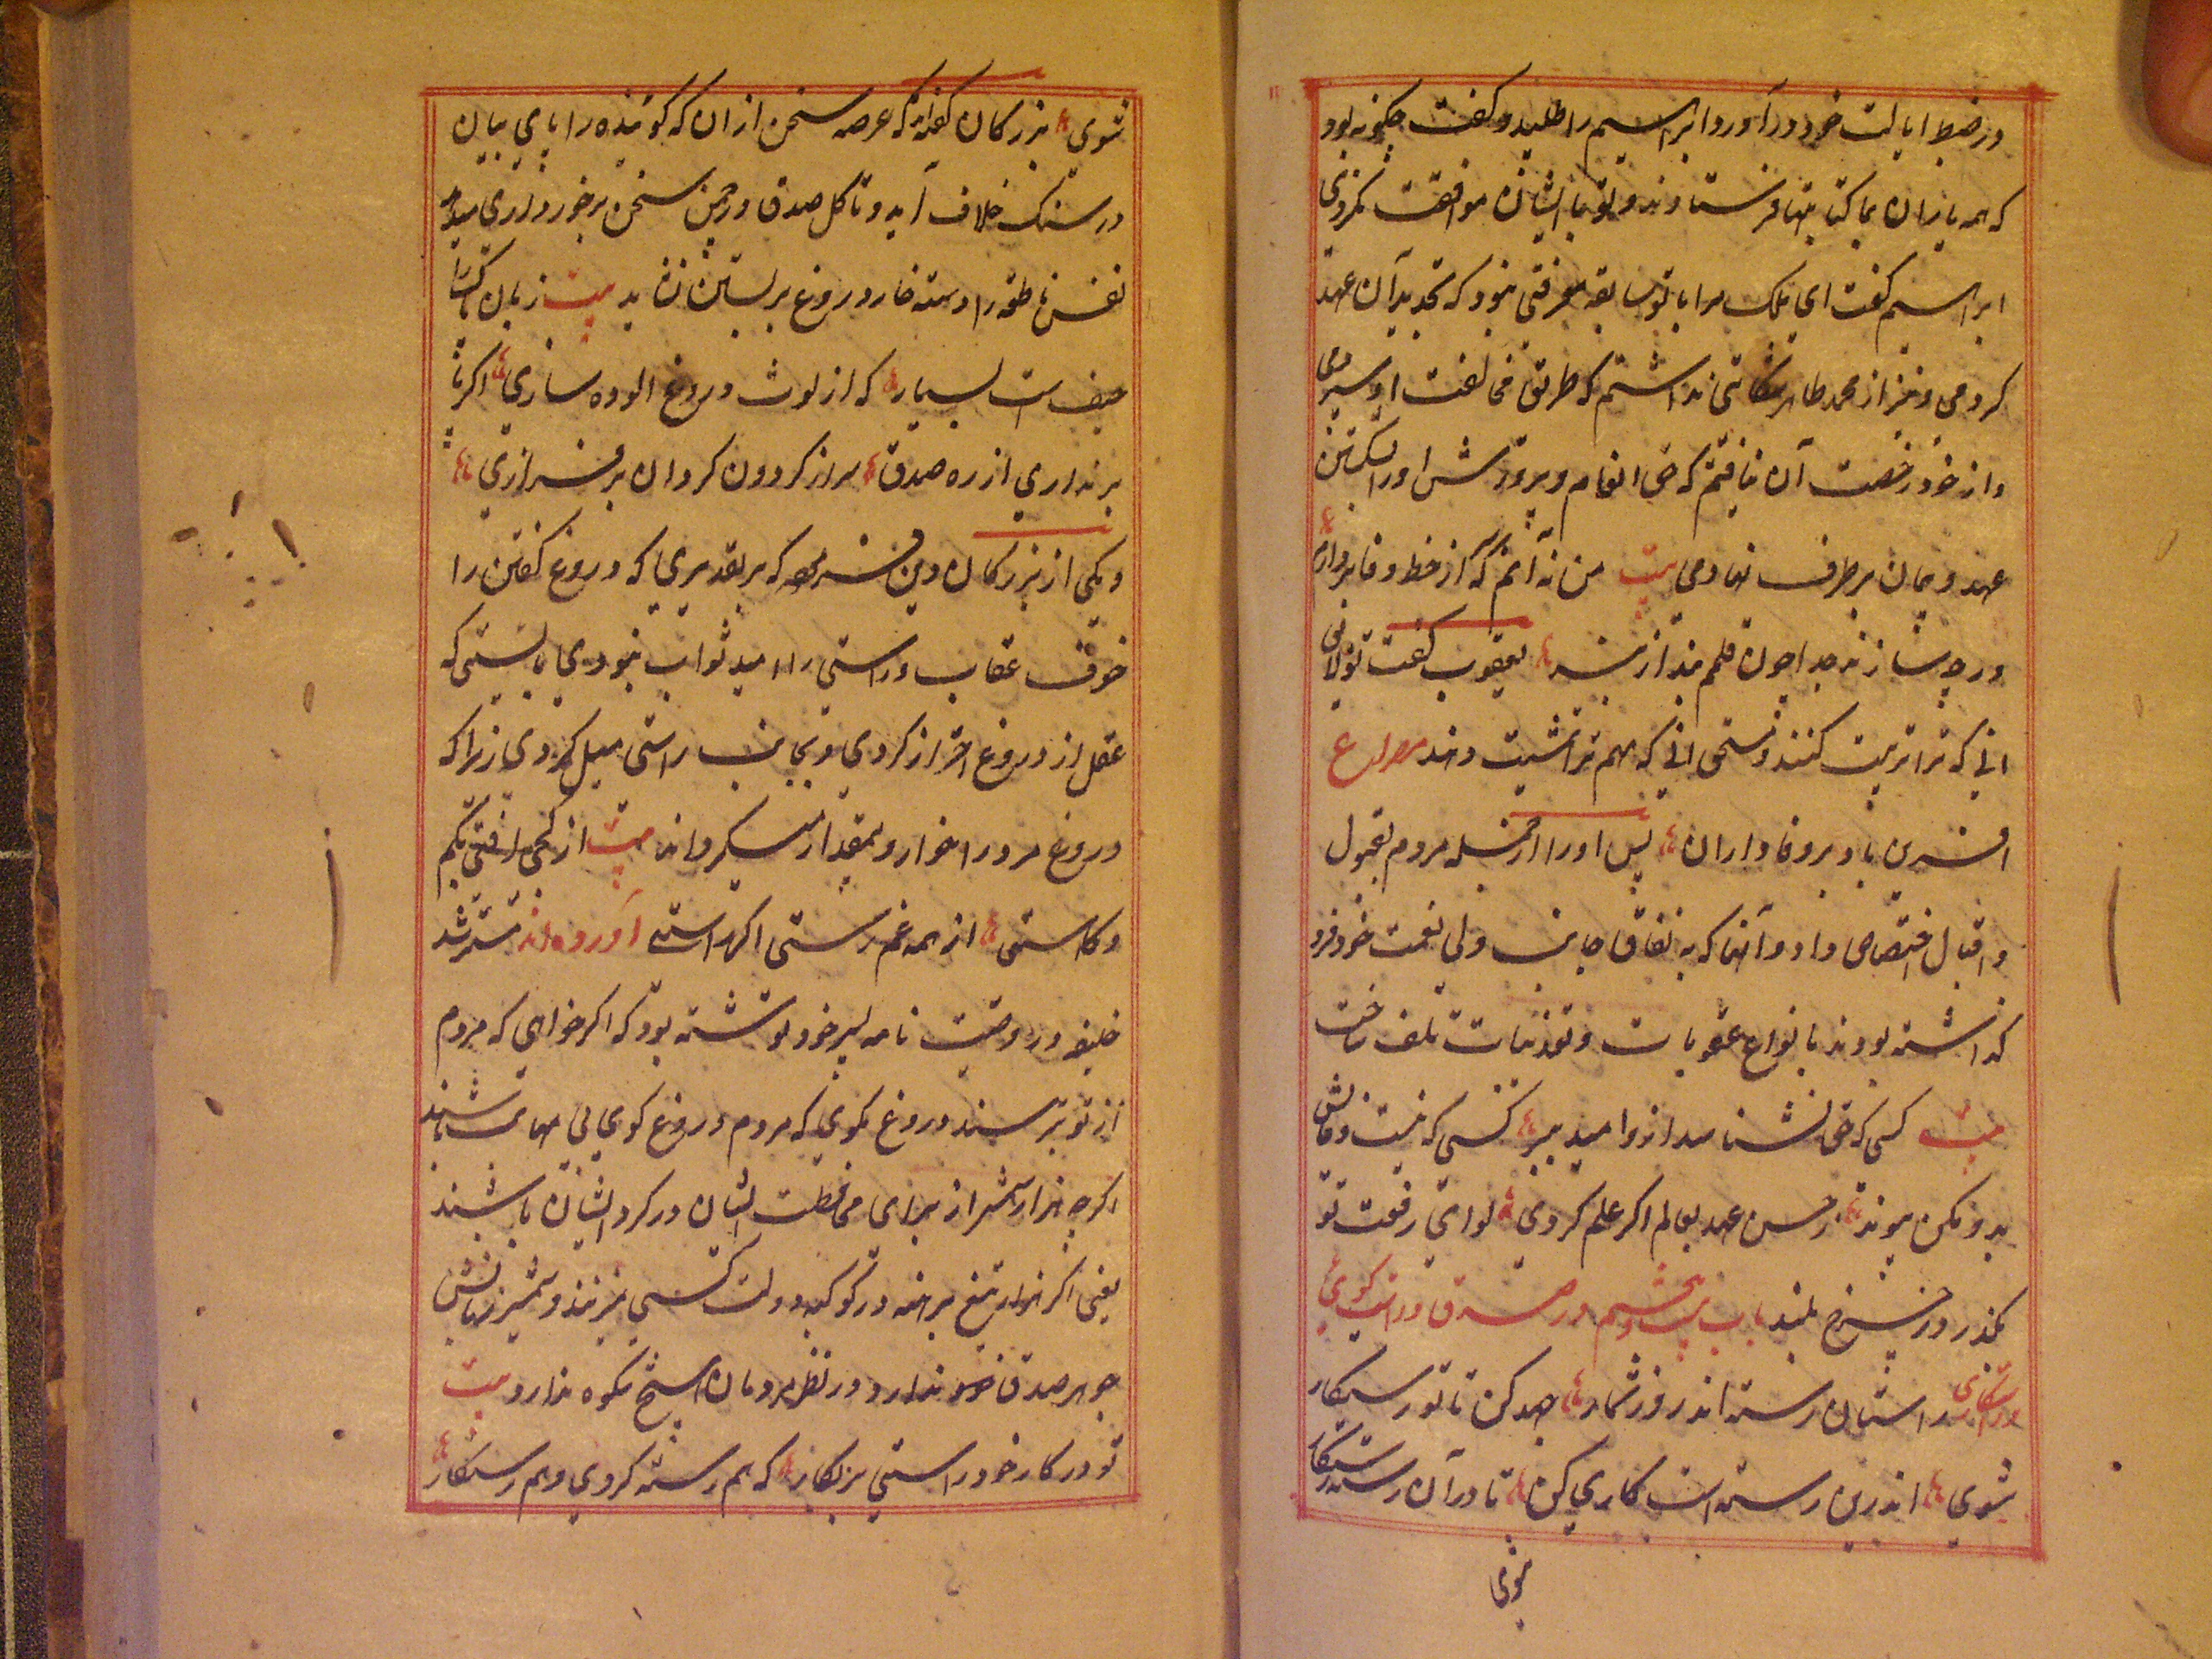 در ضبط ایالت خود درآورد ابراهیم را طلبید و گفت چگونه بود
که همه یاران بما کتابتها فرستادند و تو با ایشان موافقت نکردی
ابراهیم گفت ای ملک مرا با تو سابقه معرفتی نبود که تجدید آن عهد
کردمی و نیز از محمد طاهر شکایتی نداشتم که طریق مخالفت او سپردمی
و از خود رخصت آن نیافتم که حق انعام و پرورش او را بشکستن
عهد و پیمان برطرف نهادمی بیت من نه آنم که از خط وفا بردارم
ور چه سازند جدا چون قلم بند از بند یعقوب گفت تو لایق
انی که ترا تربیت کنند و مستحق انی که مهم ترا تمشیت دهند مصراع
افسرین باد بر وفاداران پس او را از جمله مردم بقبول
و اقبال اختصاص داد و آنها که به نفاق جانب ولی نعمت خود فرو
گذاشته بودند بانواع عقوبات و تعذیبات تلف ساخت
بیت کسی که حق نشناسد ازو امید ببر کسی که نیست وفایش
بدو مکن پیوند ز حسن عهد بعالم اگر علم کردی لوای رفعت تو
بگذرد ز چرخ بلند باب بیستم در صدق و راست گوی
راستکاری راستان رسته اند روز شمار جهد کن تا تو رستگار
شوی اندرین رسته راست کاری کن تا در آن رسته رستگار
شوی
شوی بزرگان گفته اند که عرصه سخن از ان که گوینده را پای بیان
در سنگ خلاف آید و تا گل صدق در چمن سخن برخورداری میدهد
نفس ناطقه را دسته خار دروغ بر بستن نشاید بیت زبان پاک را
حیف است بسیار که از لوث دروغ الوده سازی اگر پا
برنداری از ره صدق سر از گردون گردان بر فسرازی
و یکی از بزرگان دین فرموده که بر تقدیری که دروغ گفتن را
خوف عقاب و راستی را امید ثواب نبودی بایستی که
عقل از دروغ احتراز کردی و بجانب راستی میل کردی زیرا که
دروغ مرد را خوار و بیمقدار میگرداند بیت از کجی افتی بکم
و کاستی از همه غم رستی اگر راستی آورده اند مسترشد
خلیفه در وصیت نامه پسر خود نوشته بود که اگر خواهی که مردم
از تو بترسند دروغ مگوی که مردم دروغ گوی بی مهابت باشند
اگرچه هزار شمشیر از برای محافظت ایشان در گرد ایشان باشند
یعنی اگر هزار تیغ برهنه در کوکبه دولت کسی میزنند و شمشیر زبانش
جوهر صدق ندارد در نظر مردمان هیچ شکوه ندارد بیت
تو در کار خود راستی بر بکار که هم رسته گردی و هم رستگار